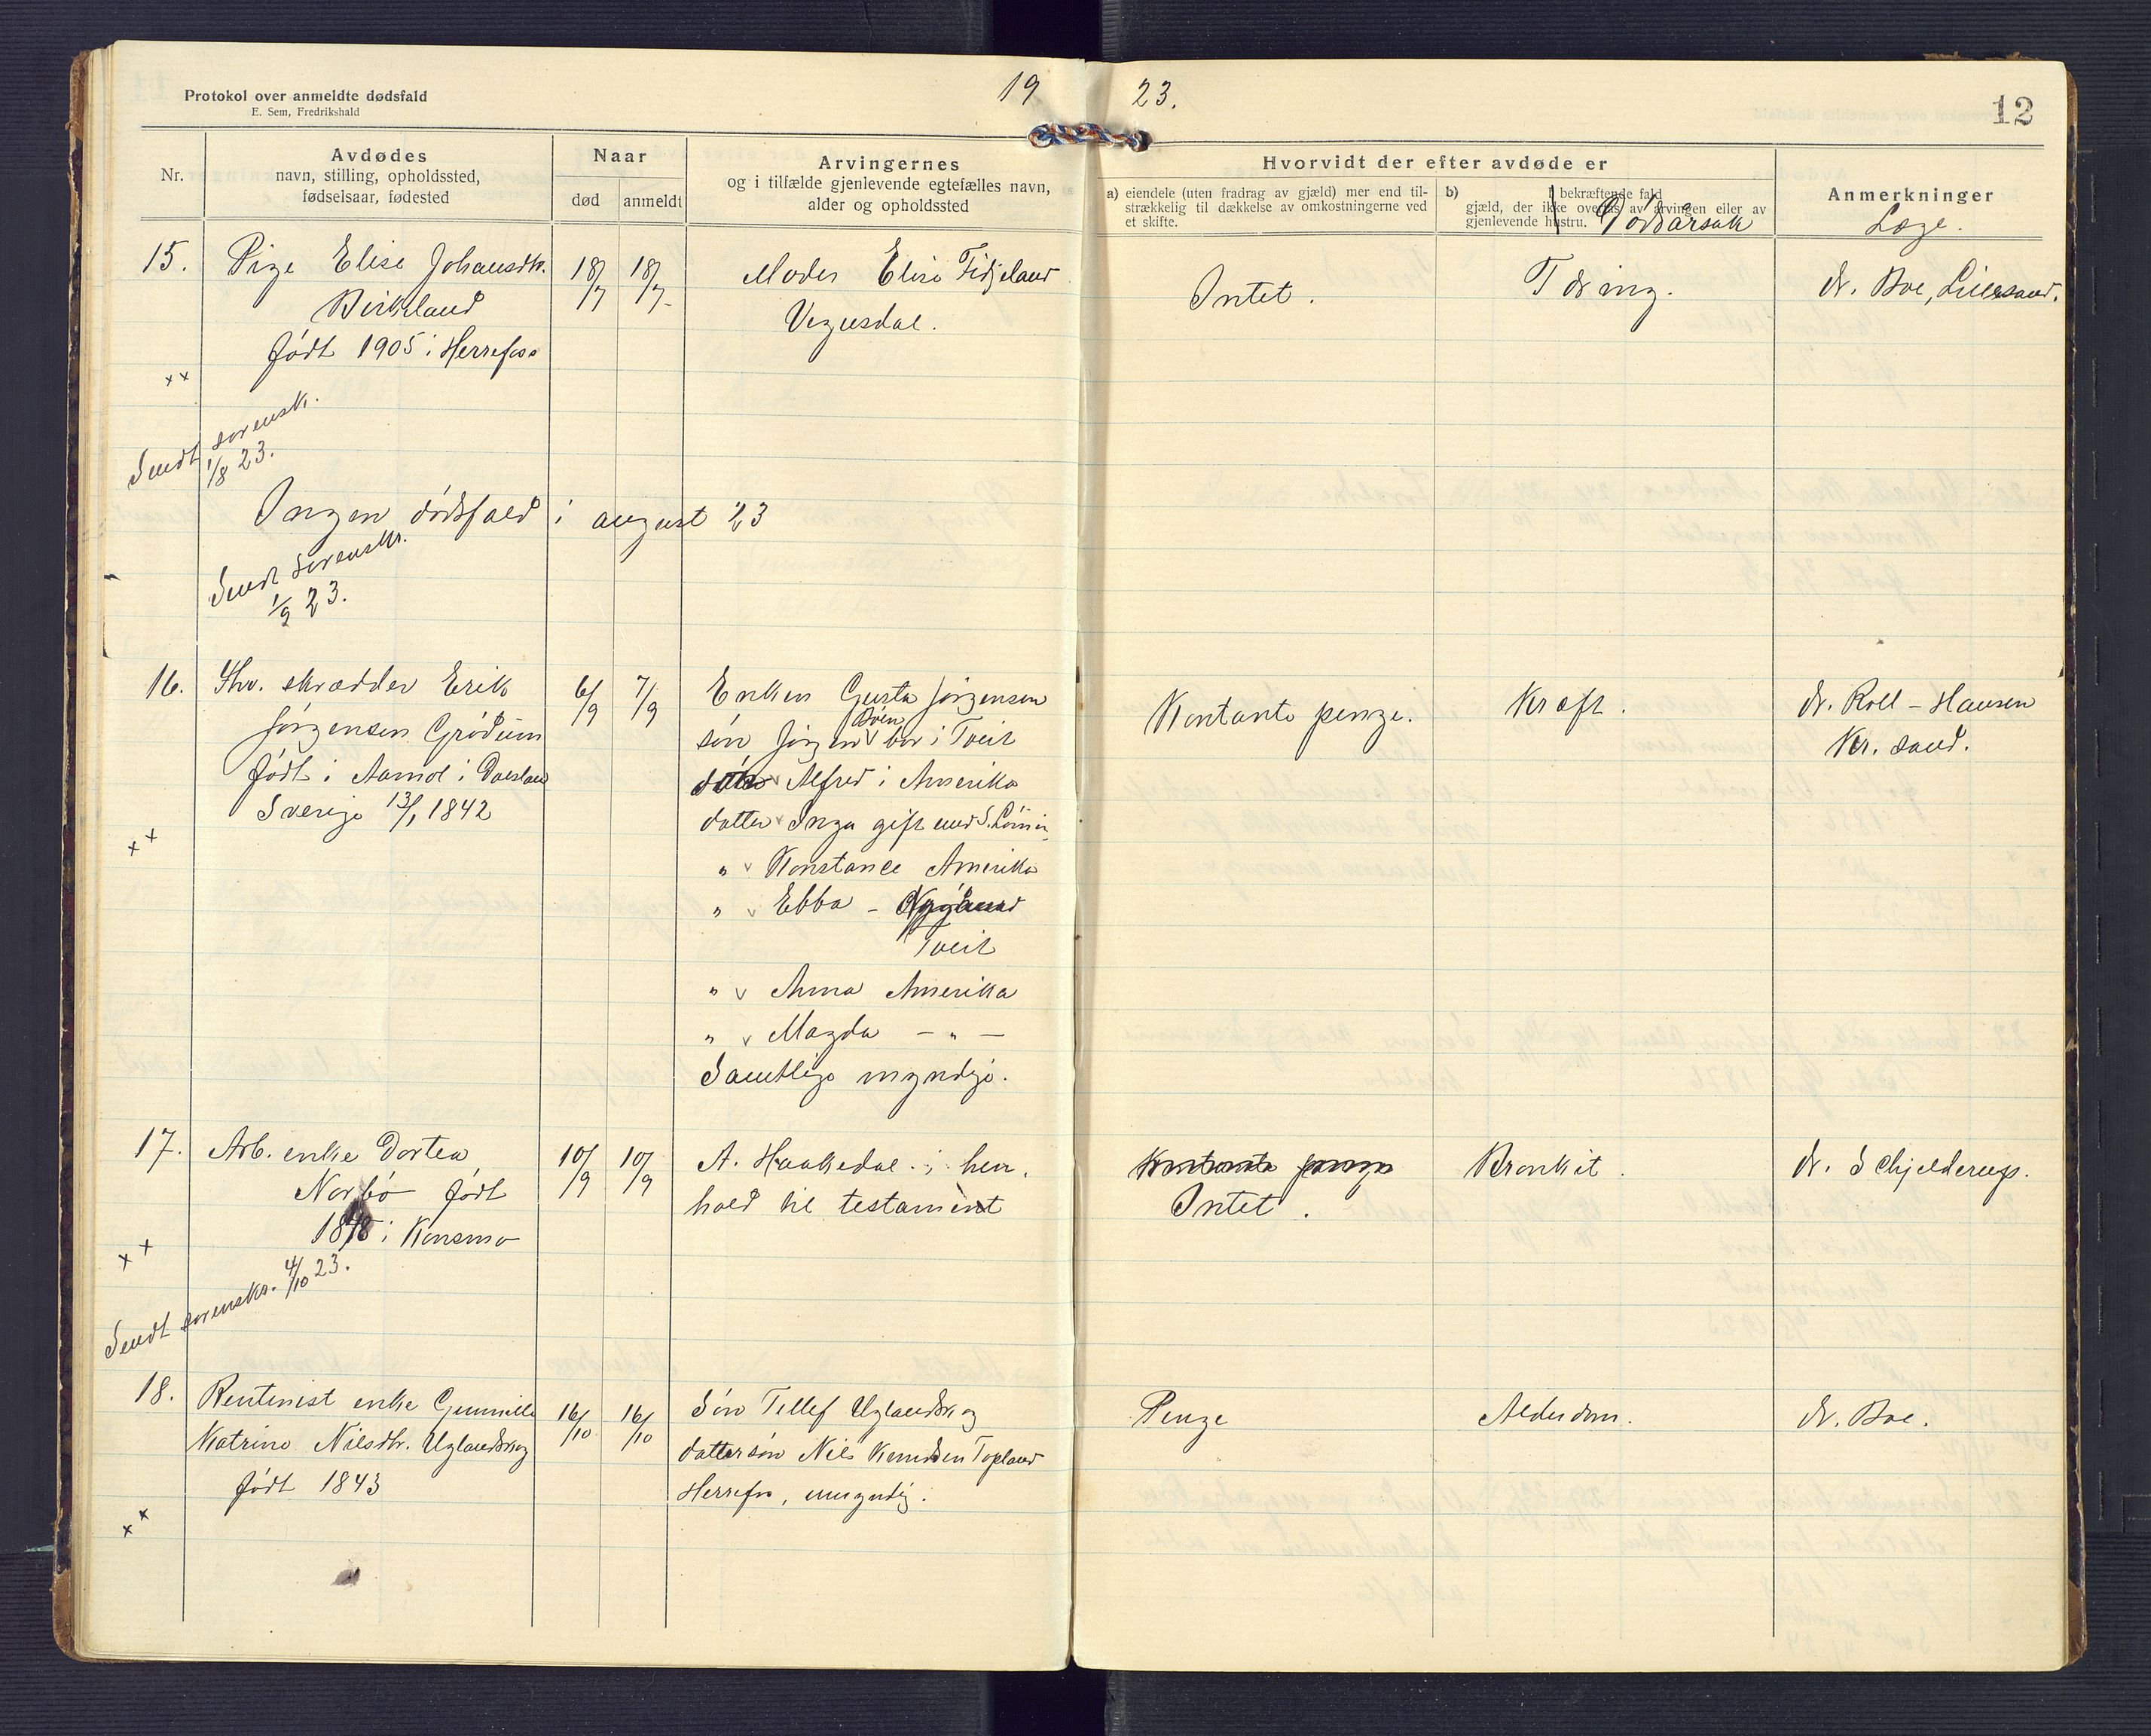 Protokol over anmeldte dødsfald
E. Sem, Fredrikshald
19 23.
12
Nr.
Avdødes
navn, stilling, opholdssted,
fødselsaar, fødested
Naar
død anmeldt
Arvingernes
og i tilfælde gjenlevende egtefælles navn,
alder og opholdssted
Hvorvidt der efter avdøde er
a) eiendele (uten fradrag av gjæld) mer end til-
strækkelig til dækkelse av omkostningerne ved
et skifte.
b) I bekræftende fald
gjæld, der ikke overtas av arvingen eller av
gjenlevende hustru. Dødsårsak
Anmerkninger
Læge.
15. Pige Elise Johansdtr. 18/7 18/7 Moder Elise Fidjeland Intet. Tæring. dr. Boe, Lillesand.
Birkeland Vegusdal.
født 1905 i Herrefoss
××
Sendt sorensk.
1/8 23.
Ingen dødsfald i august 23
Sendt Sorenskr.
1/9 23.
16. Fhv. skrædder Erik 6/9 7/9 Enken Gusta Jørgensen Kontante penge. Kræft. dr. Roll-Hansen
Jørgensen Grødum søn Jørgen Sven bor i Tveit Kr. sand.
født i Aamol i Dalsland Alfred i Amerika
Sverige 13/1 1842 datter Inga gift med S.
×× " Konstance Amerika
" Ebba -
Tveit
" Anna Amerika
" Magda — " —
Samtlige myndige.
17. Arb. enke Dortea 10/9 10/9 A. Haakedal i hen- Kontante penge Bronkit. dr. Schjelderup.
Norbø født hold til testament Intet.
1848 i Konsmo
××
Sendt sorenskr. 4/10 23.
18. Rentenist enke Gunnille 16/10 16/10 Søn Tellef Uglandskog Penge Alderdom. dr. Boe.
Katrine Nilsdtr. Uglandskog dattersøn Nils Knudsen Topland
født 1843 Herrefos, umyndig.
××